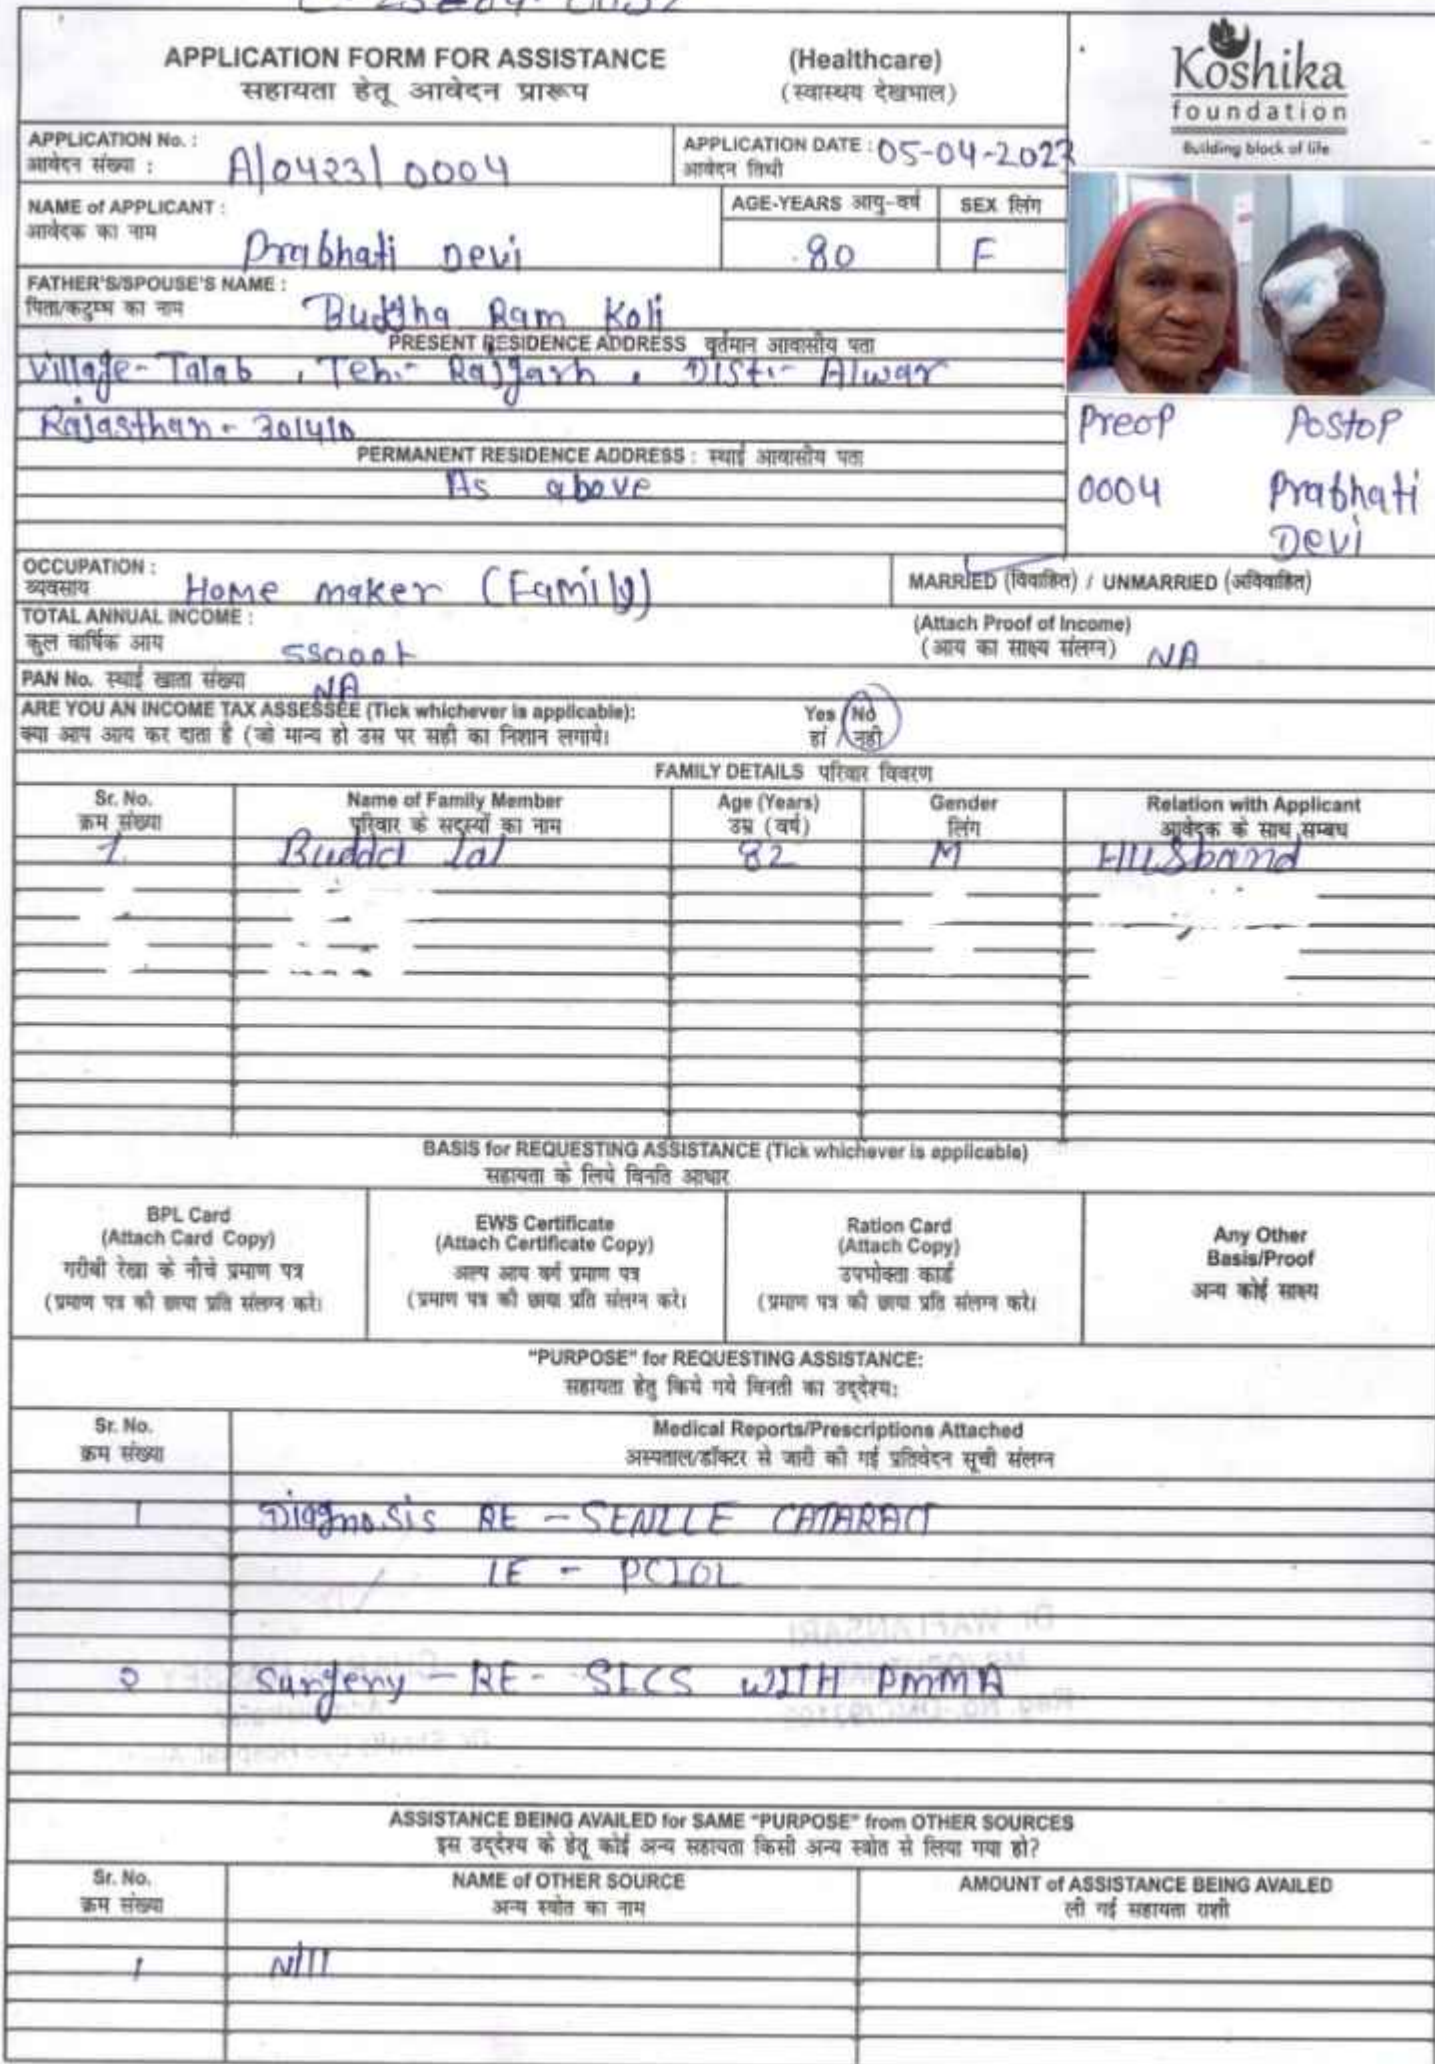 APPLICATION FORM FOR ASSISTANCE (Healthcare)
सहायता हेतू आवेदन प्रारूप (स्वास्थय देखभाल)
Koshika
foundation
Building block of life
APPLICATION No. : A/0423/0004
आवेदन संख्या :
APPLICATION DATE : 05-04-2023
आवेदन तिथी
NAME of APPLICANT : Prabhati Devi
आवेदक का नाम
AGE-YEARS आयु-वर्ष SEX लिंग
80 F
FATHER'S/SPOUSE'S NAME :
पिता/कटुम्ब का नाम Buddha Ram Koli
PRESENT RESIDENCE ADDRESS वर्तमान आवासीय पता
Village- Talab , Teh:- Rajgarh , Dist:- Alwar
Rajasthan - 301410
PERMANENT RESIDENCE ADDRESS : स्थाई आवासीय पता
As above
Preop Postop
0004 Prabhati
Devi
OCCUPATION :
व्यवसाय Home maker (Family)
MARRIED (विवाहित) / UNMARRIED (अविवाहित)
TOTAL ANNUAL INCOME :
कुल वार्षिक आय
(Attach Proof of Income)
(आय का साक्ष्य संलग्न) NA
PAN No. स्थाई खाता संख्या NA
ARE YOU AN INCOME TAX ASSESSEE (Tick whichever is applicable): Yes / No
क्या आप आय कर दाता है (जो मान्य हो उस पर सही का निशान लगाये। हां / नही
FAMILY DETAILS परिवार विवरण
Sr. No. Name of Family Member Age (Years) Gender Relation with Applicant
क्रम संख्या परिवार के सदस्यों का नाम उम्र (वर्ष) लिंग आवेदक के साथ सम्बध
1. Budda lal 82 M Husband
BASIS for REQUESTING ASSISTANCE (Tick whichever is applicable)
सहायता के लिये विनति आधार
BPL Card
(Attach Card Copy)
गरीबी रेखा के नीचे प्रमाण पत्र
(प्रमाण पत्र की छाया प्रति संलग्न करे।
EWS Certificate
(Attach Certificate Copy)
अल्प आय वर्ग प्रमाण पत्र
(प्रमाण पत्र की छाया प्रति संलग्न करे।
Ration Card
(Attach Copy)
उपभोक्ता कार्ड
(प्रमाण पत्र की छाया प्रति संलग्न करे।
Any Other
Basis/Proof
अन्य कोई साक्ष्य
"PURPOSE" for REQUESTING ASSISTANCE:
सहायता हेतु किये गये विनती का उद्देश्य:
Sr. No. Medical Reports/Prescriptions Attached
क्रम संख्या अस्पताल/डॉक्टर से जारी की गई प्रतिवेदन सूची संलग्न
1 Diagnosis RE - SENILE CATARACT
LE - PCIOL
2 Surgery - RE - SICS WITH PMMA
ASSISTANCE BEING AVAILED for SAME "PURPOSE" from OTHER SOURCES
इस उद्देश्य के हेतू कोई अन्य सहायता किसी अन्य स्त्रोत से लिया गया हो?
Sr. No. NAME of OTHER SOURCE AMOUNT of ASSISTANCE BEING AVAILED
क्रम संख्या अन्य स्त्रोत का नाम ली गई सहायता राशी
1 Nill